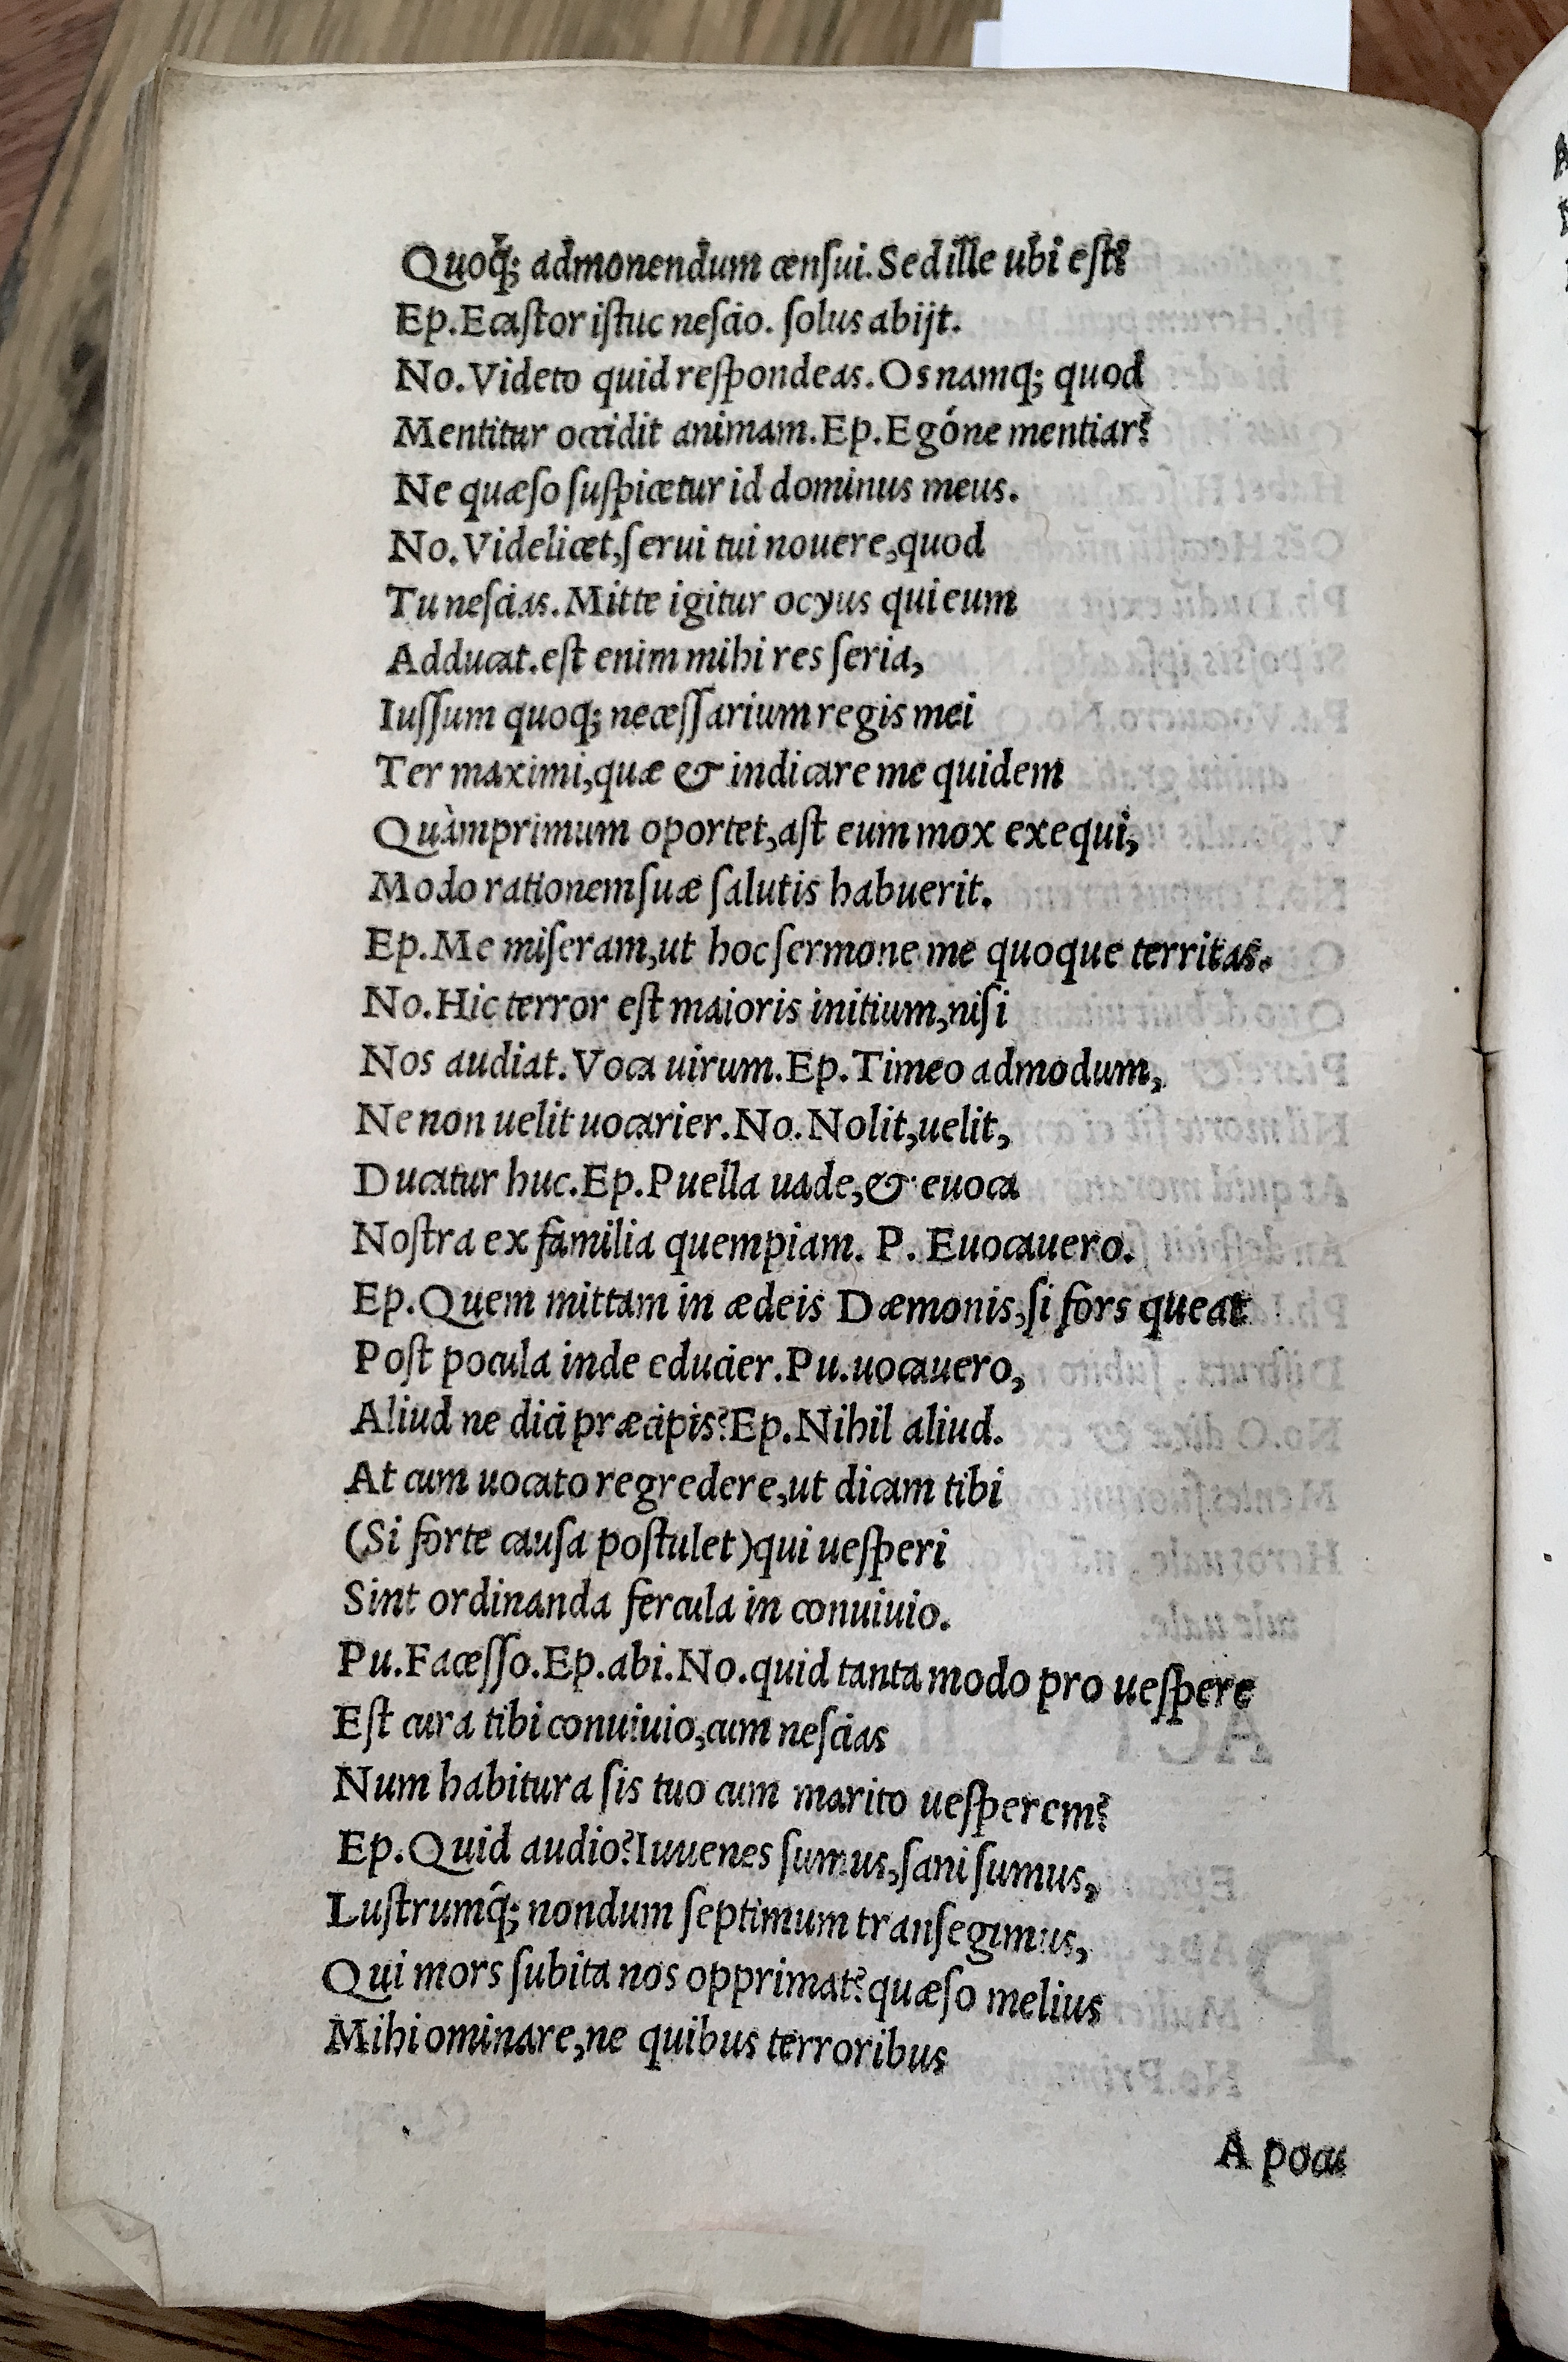 Quoq́; admonendum cenſui. Sed ille ubi eſt?
Ep. Ecaſtor iſtuc neſcio. ſolus abijt.
No. Videto quid reſpondeas. Os namq; quod
Mentitur occidit animam. Ep. Egóne mentiar?
Ne quæſo ſuſpicetur id dominus meus.
No. Videlicet, ſerui tui nouere, quod
Tu neſcias. Mitte igitur ocyus qui eum
Adducat. eſt enim mihi res ſeria,
Iuſſum quoq; neceſſarium regis mei
Ter maximi, quæ & indicare me quidem
Quàmprimum oportet, aſt eum mox exequi,
Modo rationem ſuæ ſalutis habuerit.
Ep. Me miſeram, ut hoc ſermone me quoque territas.
No. Hic terror eſt maioris initium, niſi
Nos audiat. Voca uirum. Ep. Timeo admodum,
Ne non uelit uocarier. No. Nolit, uelit,
Ducatur huc. Ep. Puella uade, & euoca
Noſtra ex familia quempiam. P. Euocauero.
Ep. Quem mittam in ædeis Dæmonis, ſi fors queat
Poſt pocula inde educier. Pu. uocauero,
Aliud ne dici præcipis? Ep. Nihil aliud.
At cum uocato regredere, ut dicam tibi
(Si forte cauſa poſtulet) qui ueſperi
Sint ordinanda fercula in conuiuio.
Pu. Faceſſo. Ep. abi. No. quid tanta modo pro ueſpere
Eſt cura tibi conuiuio, cum neſcias
Num habitura ſis tuo cum marito ueſperem?
Ep. Quid audio? Iuuenes ſumus, ſani ſumus,
Luſtrumq́; nondum ſeptimum tranſegimus,
Qui mors ſubita nos opprimat? quæſo melius
Mihi ominare, ne quibus terroribus
A pocu